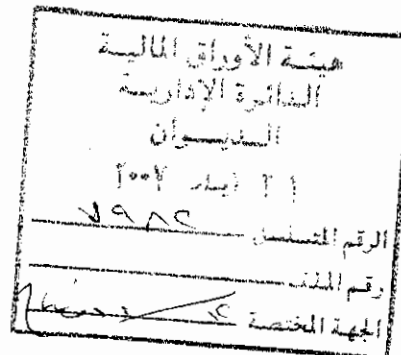 هيئة الأوراق المالية
الدائرة الإدارية
الديوان
٢١ أيار ٢٠٠٧
الرقم المتسلسل
رقم الملف
الجهة المختصة